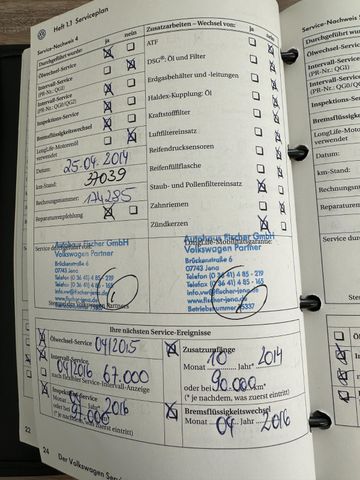 Heft 1.1 Serviceplan
Service-Nachweis 4
ja nein
Durchgeführt wurde:
Ölwechsel-Service
Intervall-Service
(PR-Nr.: QG1)
Intervall-Service
(PR-Nr.: QG0/QG2)
Inspektions-Service
Bremsflüssigkeitswechsel
LongLife-Motorenöl
verwendet
Datum: 25.04.2014
km-Stand: 37039
Rechnungsnummer: 174285
Reparaturempfehlung
Zusatzarbeiten – Wechsel von: ja nein
ATF
DSG®: Öl und Filter
Erdgasbehälter und -leitungen
Haldex-Kupplung: Öl
Kraftstofffilter
Luftfiltereinsatz
Reifendrucksensoren
Reifenfüllflasche
Staub- und Pollenfiltereinsatz
Zahnriemen
Zündkerzen
Service durchgeführt von:
Autohaus Fischer GmbH
Volkswagen Partner
Brückenstraße 6
07743 Jena
Telefon (0 36 41) 4 85 - 219
Telefax (0 36 41) 4 85 - 165
info.vw@fischer-jena.de
www.fischer-jena.de
Stempel des Volkswagen Partners
LongLife-Mobilitätsgarantie:
Autohaus Fischer GmbH
Volkswagen Partner
Brückenstraße 6
07743 Jena
Telefon (0 36 41) 4 85 - 219
Telefax (0 36 41) 4 85 - 165
info.vw@fischer-jena.de
www.fischer-jena.de
Ihre nächsten Service-Ereignisse
Ölwechsel-Service 04/2015
Intervall-Service
04/2016 67.000
nach flexibler Service-Intervall-Anzeige
Inspektions-Service
Monat Jahr* 2016
oder bei
(* je nachdem, was zuerst eintritt)
Zusatzumfänge
Monat 10 Jahr* 2014
oder bei 90.000 km*
(* je nachdem, was zuerst eintritt)
Bremsflüssigkeitswechsel
Monat 04 Jahr 2016
24
Der Volkswagen
22
Durchgeführt wurde
Ölwechsel-Service
Intervall-Service
(PR-Nr.: QG1)
Intervall-Service
Inspektions-Se
Bremsflüssigkeits
LongLife-Motorenöl
verwendet
Datum:
km-Stand:
Rechnungsnummer
Service du